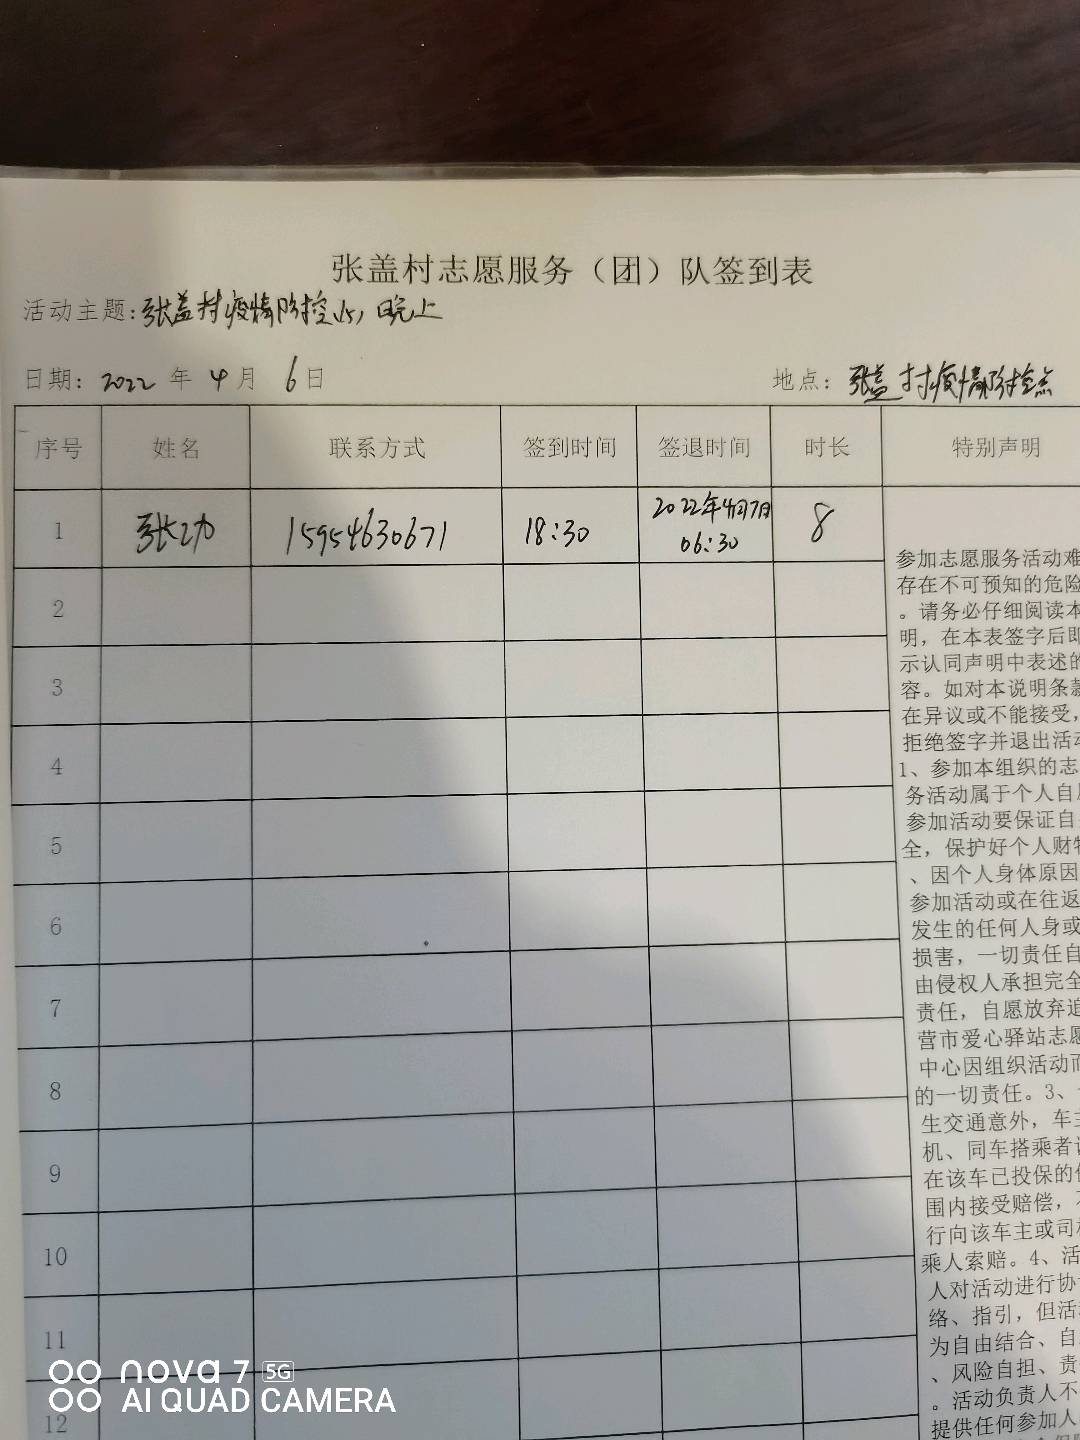 张盖村志愿服务（团）队签到表
活动主题:张盖村疫情防控 晚上
日期: 2022 年 4 月 6 日 地点: 张盖村疫情防控点
序号 姓名 联系方式 签到时间 签退时间 时长 特别声明
1 张功 15954630671 18:30 2022年4月7日 06:30 8
2
3
4
5
6
7
8
9
10
11
12
参加志愿服务活动难
存在不可预知的危险
。请务必仔细阅读本
明，在本表签字后即
示认同声明中表述的
容。如对本说明条款
在异议或不能接受，
拒绝签字并退出活动
1、参加本组织的志
务活动属于个人自愿
参加活动要保证自
全，保护好个人财物
、因个人身体原因
参加活动或在往返
发生的任何人身或
损害，一切责任自
由侵权人承担完全
责任，自愿放弃追
营市爱心驿站志愿
中心因组织活动而
的一切责任。3、
生交通意外，车主
机、同车搭乘者
在该车已投保的
围内接受赔偿，
行向该车主或司机
乘人索赔。4、活
人对活动进行协
络、指引，但活动
为自由结合、自
、风险自担、责
。活动负责人不
提供任何参加人
nova 7 5G
AI QUAD CAMERA